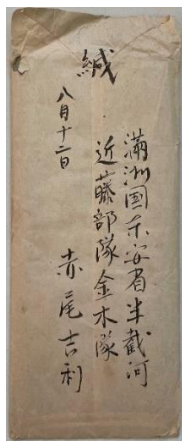 緘
満洲国东安省半截河
近藤部隊金木隊
赤尾吉利
八月十二日